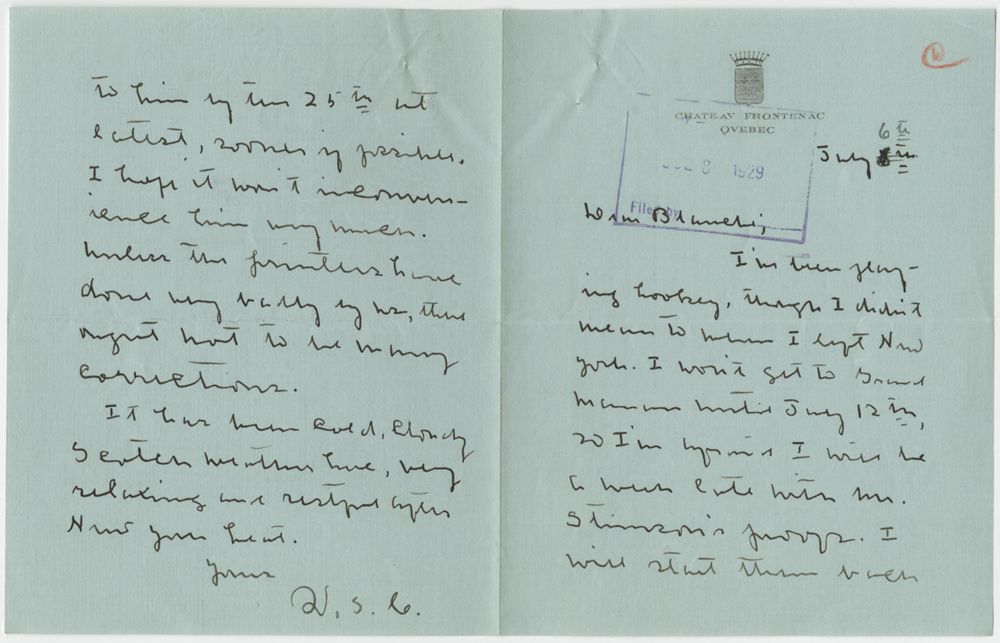 CHATEAU FRONTENAC
QUEBEC
July 6th
JUL 8 1929
Filed by
Dear Blanche;
I've been play-
ing hookey, though I didn't
mean to when I left New
York. I won't get to Grand
Manan until July 12th,
so I'm afraid I will be
a week late with Mr.
Stimson's proofs. I
will start them back
to him by the 25th at
latest, sooner if possible.
I hope it won't inconven-
ience him very much.
Unless the printers have
done very badly by us, there
ought not to be many
corrections.
It has been cold, cloudy
Scotch weather here, very
relaxing and restful after
New York heat.
Yours
W. S. C.